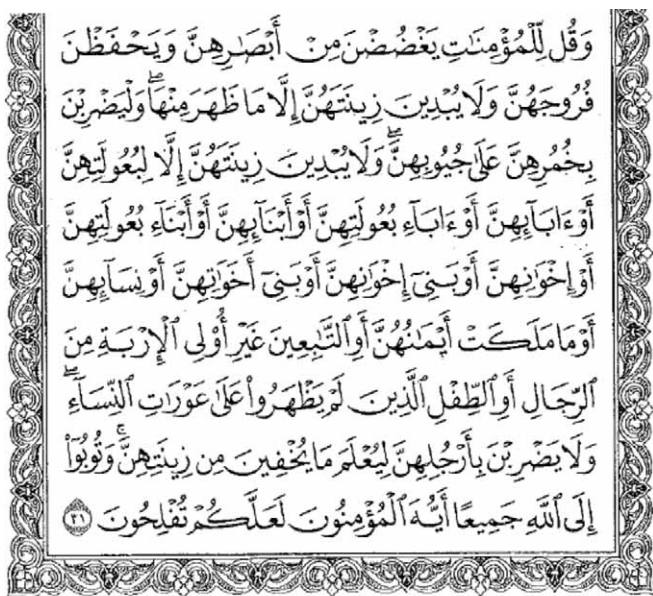 وَقُل لِّلْمُؤْمِنَٰتِ يَغْضُضْنَ مِنْ أَبْصَٰرِهِنَّ وَيَحْفَظْنَ
فُرُوجَهُنَّ وَلَا يُبْدِينَ زِينَتَهُنَّ إِلَّا مَا ظَهَرَ مِنْهَا ۖ وَلْيَضْرِبْنَ
بِخُمُرِهِنَّ عَلَىٰ جُيُوبِهِنَّ ۖ وَلَا يُبْدِينَ زِينَتَهُنَّ إِلَّا لِبُعُولَتِهِنَّ
أَوْ ءَابَآئِهِنَّ أَوْ ءَابَآءِ بُعُولَتِهِنَّ أَوْ أَبْنَآئِهِنَّ أَوْ أَبْنَآءِ بُعُولَتِهِنَّ
أَوْ إِخْوَٰنِهِنَّ أَوْ بَنِىٓ إِخْوَٰنِهِنَّ أَوْ بَنِىٓ أَخَوَٰتِهِنَّ أَوْ نِسَآئِهِنَّ
أَوْ مَا مَلَكَتْ أَيْمَٰنُهُنَّ أَوِ ٱلتَّٰبِعِينَ غَيْرِ أُو۟لِى ٱلْإِرْبَةِ مِنَ
ٱلرِّجَالِ أَوِ ٱلطِّفْلِ ٱلَّذِينَ لَمْ يَظْهَرُوا۟ عَلَىٰ عَوْرَٰتِ ٱلنِّسَآءِ ۖ
وَلَا يَضْرِبْنَ بِأَرْجُلِهِنَّ لِيُعْلَمَ مَا يُخْفِينَ مِن زِينَتِهِنَّ ۚ وَتُوبُوٓا۟
إِلَى ٱللَّهِ جَمِيعًا أَيُّهَ ٱلْمُؤْمِنُونَ لَعَلَّكُمْ تُفْلِحُونَ ٣١